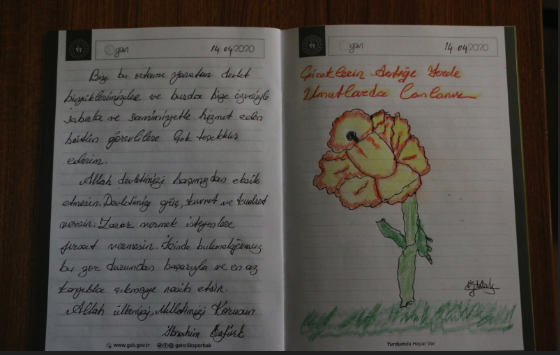 gsm
14.04.2020
Bize bu ortamı yaratan devlet
büyüklerimizlere ve burada bize özveriyle
sabırla ve samimiyetle hizmet eden
bütün görevlilere çok teşekkür
ederim.
Allah devletimizi başımızdan eksik
etmesin. Devletimize güç, kuvvet ve kudret
versin. Zarar vermek isteyenlere
fırsat vermesin. İçinde bulunduğumuz
bu zor durumdan başarıyla ve en az
kayıpla çıkmayı nasib etsin.
Allah ülkemizi, Milletimizi Korusun
İbrahim
www.gsb.gov.tr
gencliksporbak
gsm
14.04.2020
Çiçeklerin Açtığı Yerde
Umutlarda Canlanır
Yurdumda Hayat Var